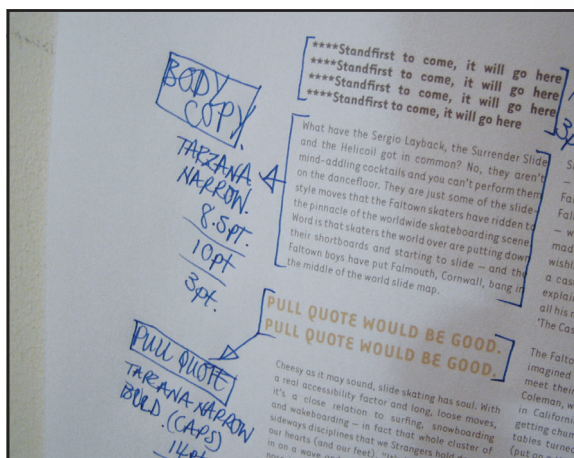 BODY
COPY.
TARZANA
NARROW.
8.5pt.
10pt
3pt.
PULL QUOTE
TARZANA NARROW
BOLD (CAPS)
14pt
****Standfirst to come, it will go here
****Standfirst to come, it will go here
****Standfirst to come, it will go here
****Standfirst to come, it will go here
What have the Sergio Layback, the Surrender Slide
and the Helicoil got in common? No, they aren't
mind-addling cocktails and you can't perform them
on the dancefloor. They are just some of the slide-
style moves that the Faltown skaters have ridden to
the pinnacle of the worldwide skateboarding scene.
Word is that skaters the world over are putting down
their shortboards and starting to slide – and the
Faltown boys have put Falmouth, Cornwall, bang in
the middle of the world slide map.
PULL QUOTE WOULD BE GOOD.
PULL QUOTE WOULD BE GOOD.
Cheesy as it may sound, slide skating has soul. With
a real accessibility factor and long, loose moves,
it's a close relation to surfing, snowboarding
and wakeboarding – in fact that whole cluster of
sideways disciplines that we Strangers hold
our hearts (and our feet).
in on a wave
made
wish
a cas
explain
all his
'The Cas
The Falto
imagined
meet their
Coleman,
in Californ
getting chum
tables turned
(put on